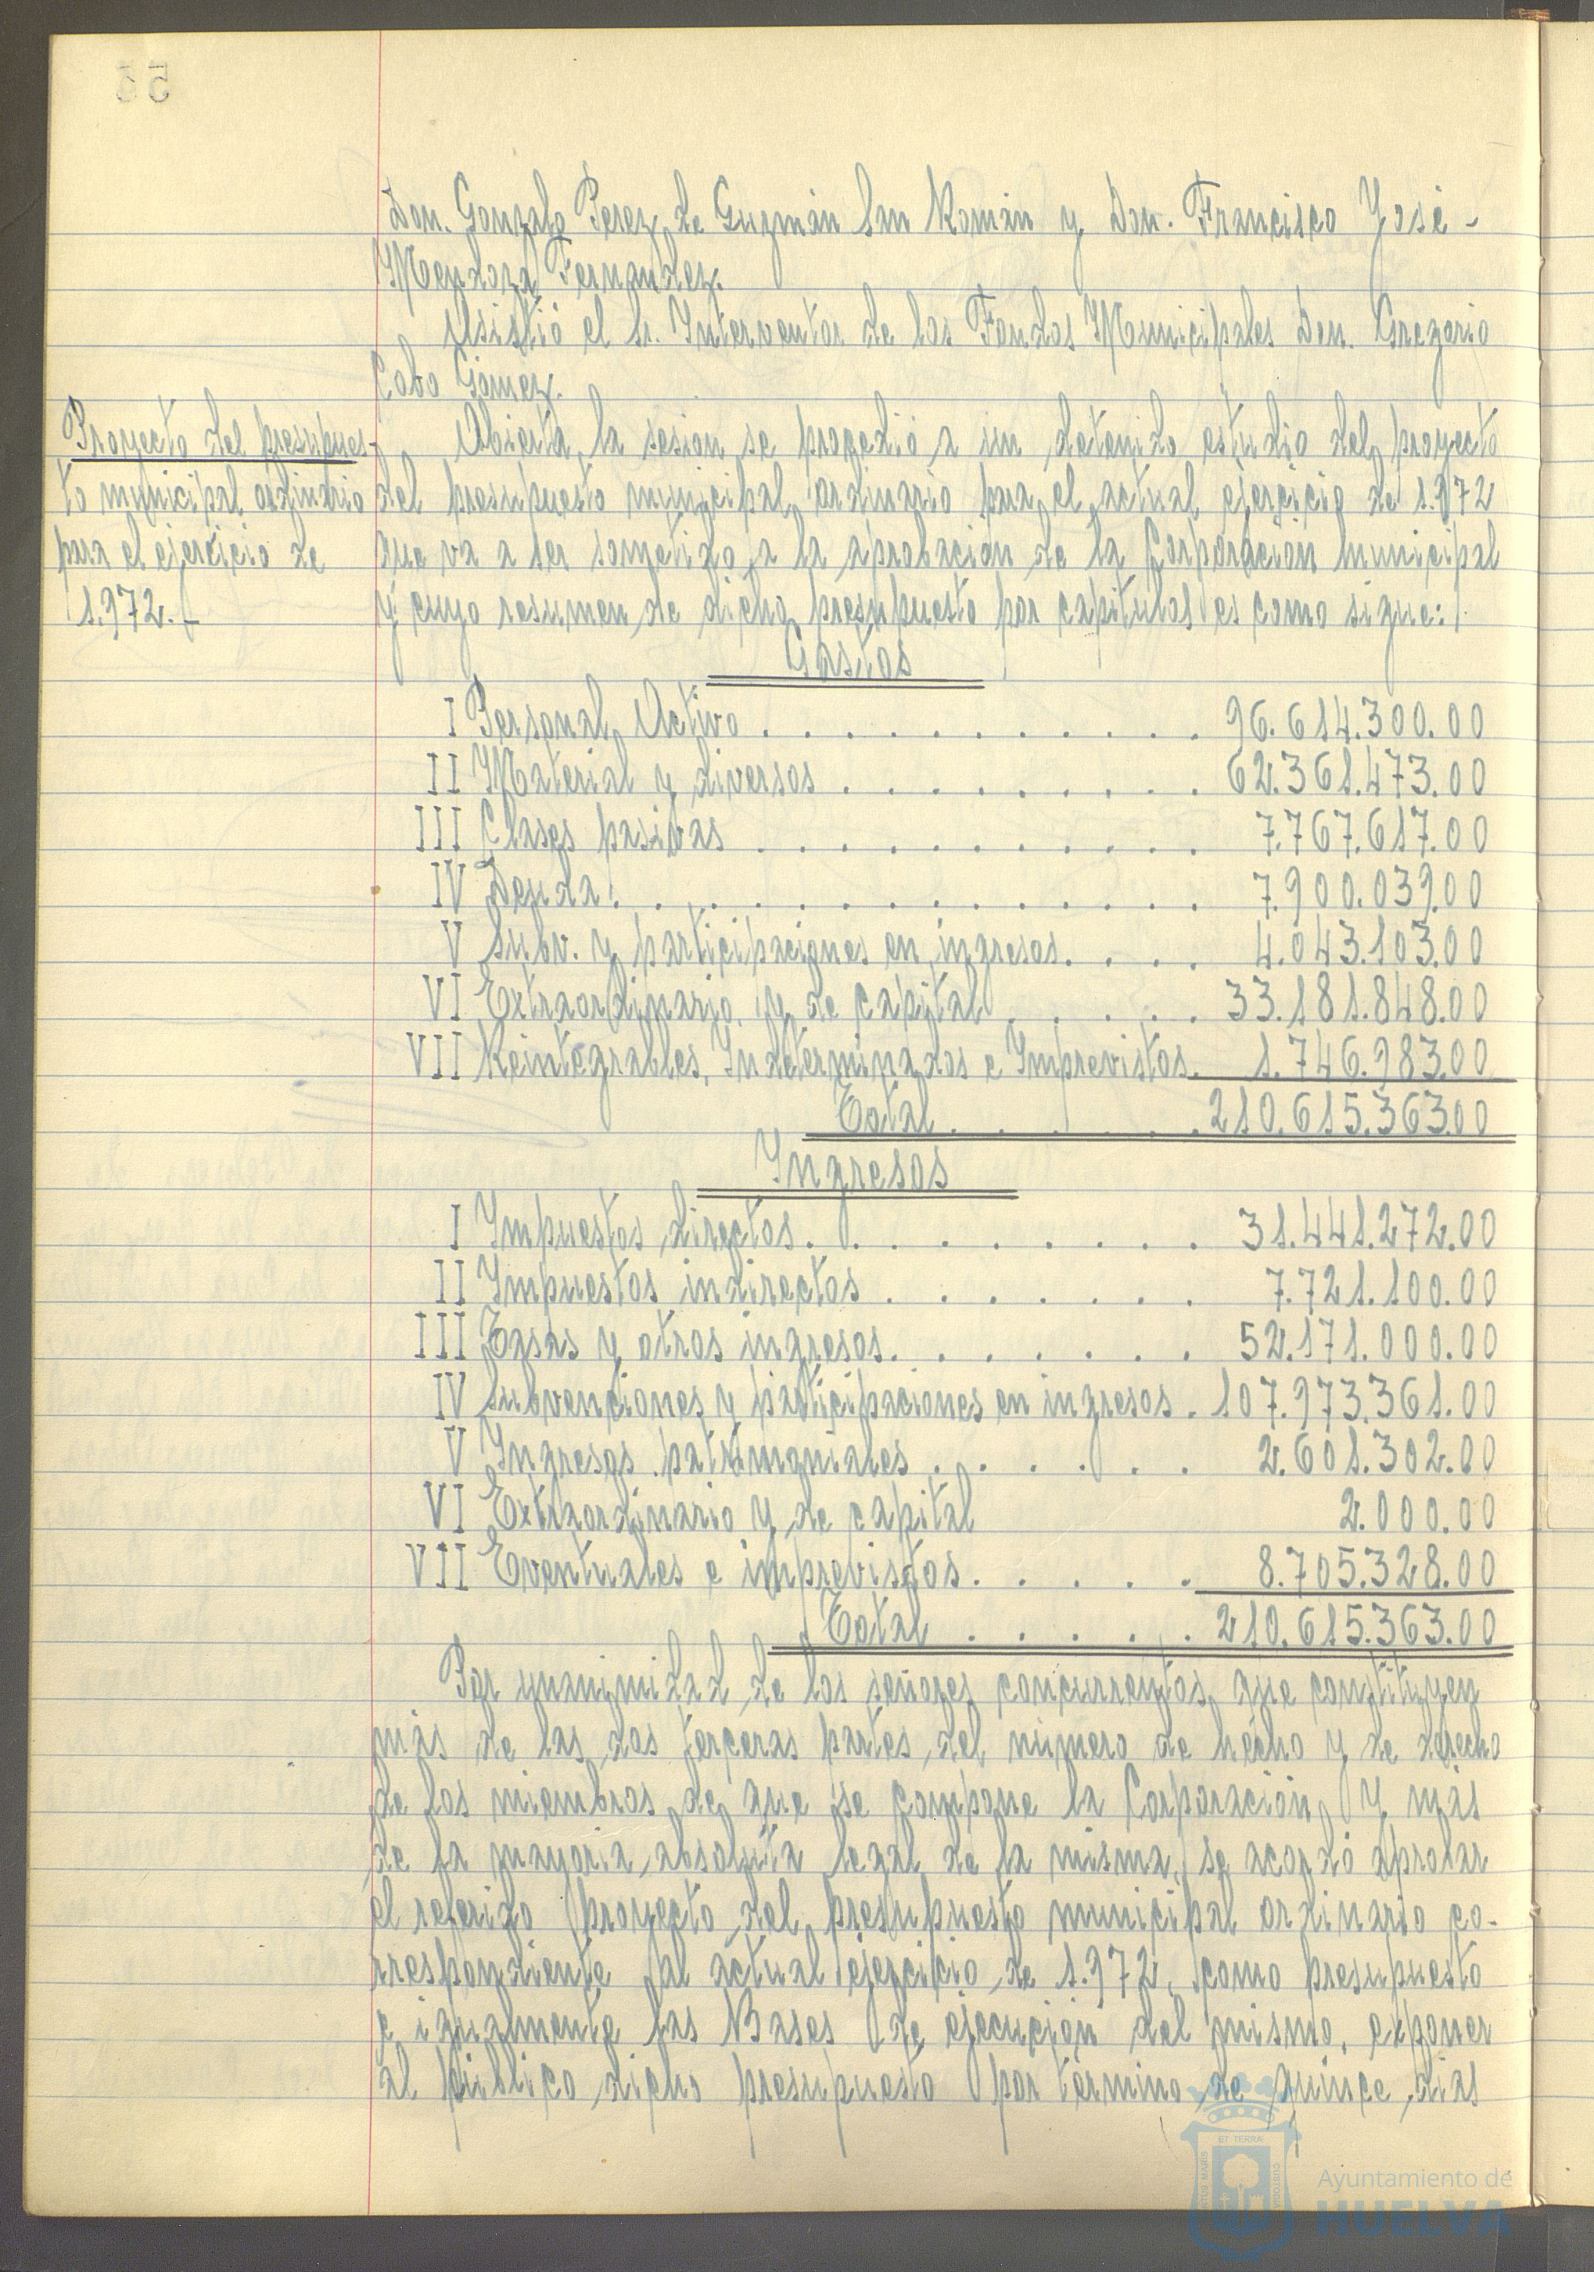 Don. Gonzalo Perez de Guzmán San Román y Don. Francisco José -
Mendoza Fernandez.
Asistió el Sr. Interventor de los Fondos Municipales Don. Gregorio
Cobo Gómez.
Proyecto del presupues-
to municipal ordinario
para el ejercicio de
1.972.-
Abierta la sesion se procedió a un detenido estudio del proyecto
del presupuesto municipal ordinario para el actual ejercicio de 1.972
que va a ser sometido a la aprobación de la Corporación Municipal
y cuyo resumen de dicho presupuesto por capitulos es como sigue:
Gastos
I Personal Activo . . . . . . . . . . . 96.614.300.00
II Material y diversos . . . . . . . . . 62.361.473.00
III Clases pasivas . . . . . . . . . . . 7.767.617.00
IV Deuda . . . . . . . . . . . . . . 7.900.039.00
V Subv. y participaciones en ingresos. . . . 4.043.103.00
VI Extraordinario y de capital . . . . . 33.181.848.00
VII Reintegrables, Indeterminados e Imprevistos. 1.746.983.00
Total . . . . . . 210.615.363.00
Ingresos
I Impuestos directos. . . . . . . . . . 31.441.272.00
II Impuestos indirectos . . . . . . . . 7.721.100.00
III Tasas y otros ingresos. . . . . . . . 52.171.000.00
IV Subvenciones y participaciones en ingresos . 107.973.361.00
V Ingresos patrimoniales . . . . . . 2.601.302.00
VI Extraordinario y de capital 2.000.00
VII Eventuales e imprevistos. . . . . . 8.705.328.00
Total . . . . . 210.615.363.00
Por unanimidad de los señores concurrentos que constituyen
más de las dos terceras partes del número de hecho y de derecho
de los miembros de que se compone la Corporación, y más
de la mayoria absoluta legal de la misma, se acordó aprobar
el referido proyecto del presupuesto municipal ordinario co-
rrespondiente al actual ejercicio de 1.972, como presupuesto
e igualmente las Bases de ejecución del mismo, exponer
al público dicho presupuesto por término de quince dias
Ayuntamiento de
HUELVA